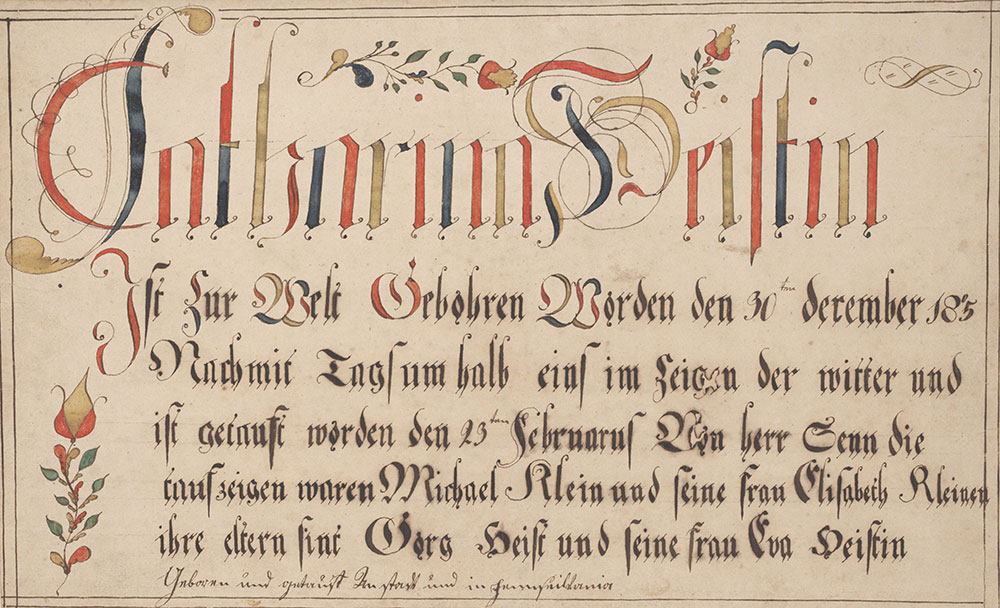 Catharina Heistin
Ist Zur Welt Gebohren Worden den 30ten december 185
Nachmit Tags um halb eins im Zeigen der witter und
ist getauft worden den 23ten Februarus Von herr Senn die
taufzeigen waren Michael Klein und seine frau Elisabeth Kleinen
ihre eltern sint Görg Heist und seine frau Eva Heistin
Geboren und getauft Im stadt und in Pennseilvania